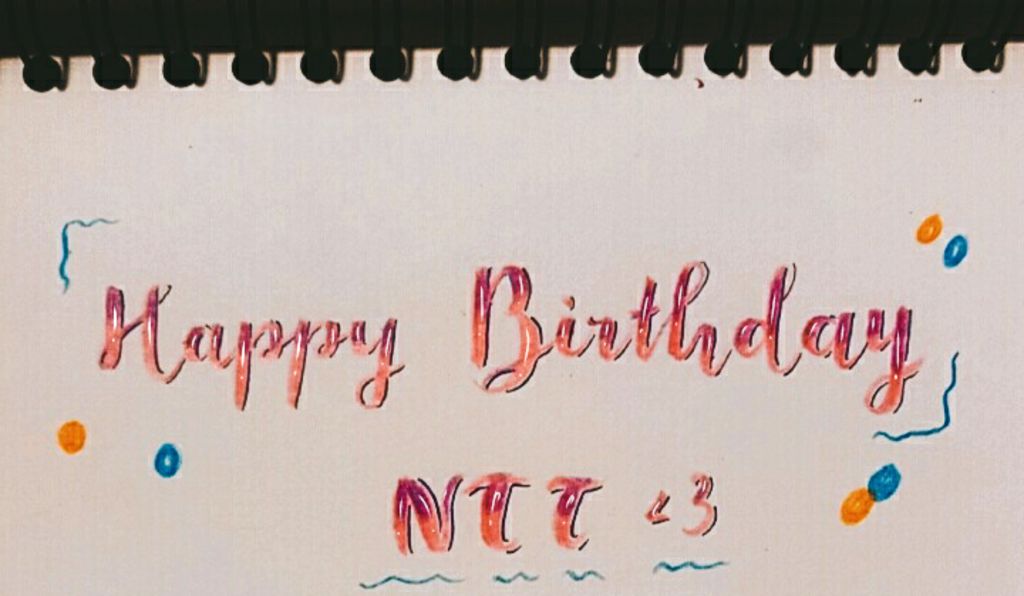 Happy Birthday
NTT <3